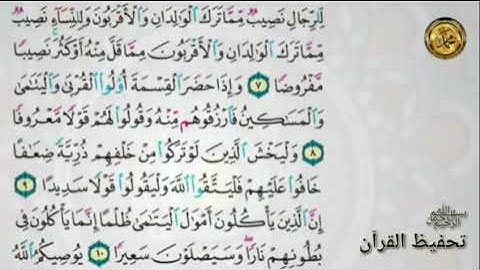 لِّلرِّجَالِ نَصِيبٌ مِّمَّا تَرَكَ ٱلْوَٰلِدَانِ وَٱلْأَقْرَبُونَ وَلِلنِّسَآءِ نَصِيبٌ
مِّمَّا تَرَكَ ٱلْوَٰلِدَانِ وَٱلْأَقْرَبُونَ مِمَّا قَلَّ مِنْهُ أَوْ كَثُرَ ۚ نَصِيبًا
مَّفْرُوضًا ٧ وَإِذَا حَضَرَ ٱلْقِسْمَةَ أُو۟لُوا۟ ٱلْقُرْبَىٰ وَٱلْيَتَٰمَىٰ
وَٱلْمَسَٰكِينُ فَٱرْزُقُوهُم مِّنْهُ وَقُولُوا۟ لَهُمْ قَوْلًا مَّعْرُوفًا
٨ وَلْيَخْشَ ٱلَّذِينَ لَوْ تَرَكُوا۟ مِنْ خَلْفِهِمْ ذُرِّيَّةً ضِعَٰفًا
خَافُوا۟ عَلَيْهِمْ فَلْيَتَّقُوا۟ ٱللَّهَ وَلْيَقُولُوا۟ قَوْلًا سَدِيدًا ٩
إِنَّ ٱلَّذِينَ يَأْكُلُونَ أَمْوَٰلَ ٱلْيَتَٰمَىٰ ظُلْمًا إِنَّمَا يَأْكُلُونَ فِى
بُطُونِهِمْ نَارًا ۖ وَسَيَصْلَوْنَ سَعِيرًا ١٠ يُوصِيكُمُ ٱللَّهُ
محمد
بسم الله الرحمن الرحيم
تحفيظ القرآن